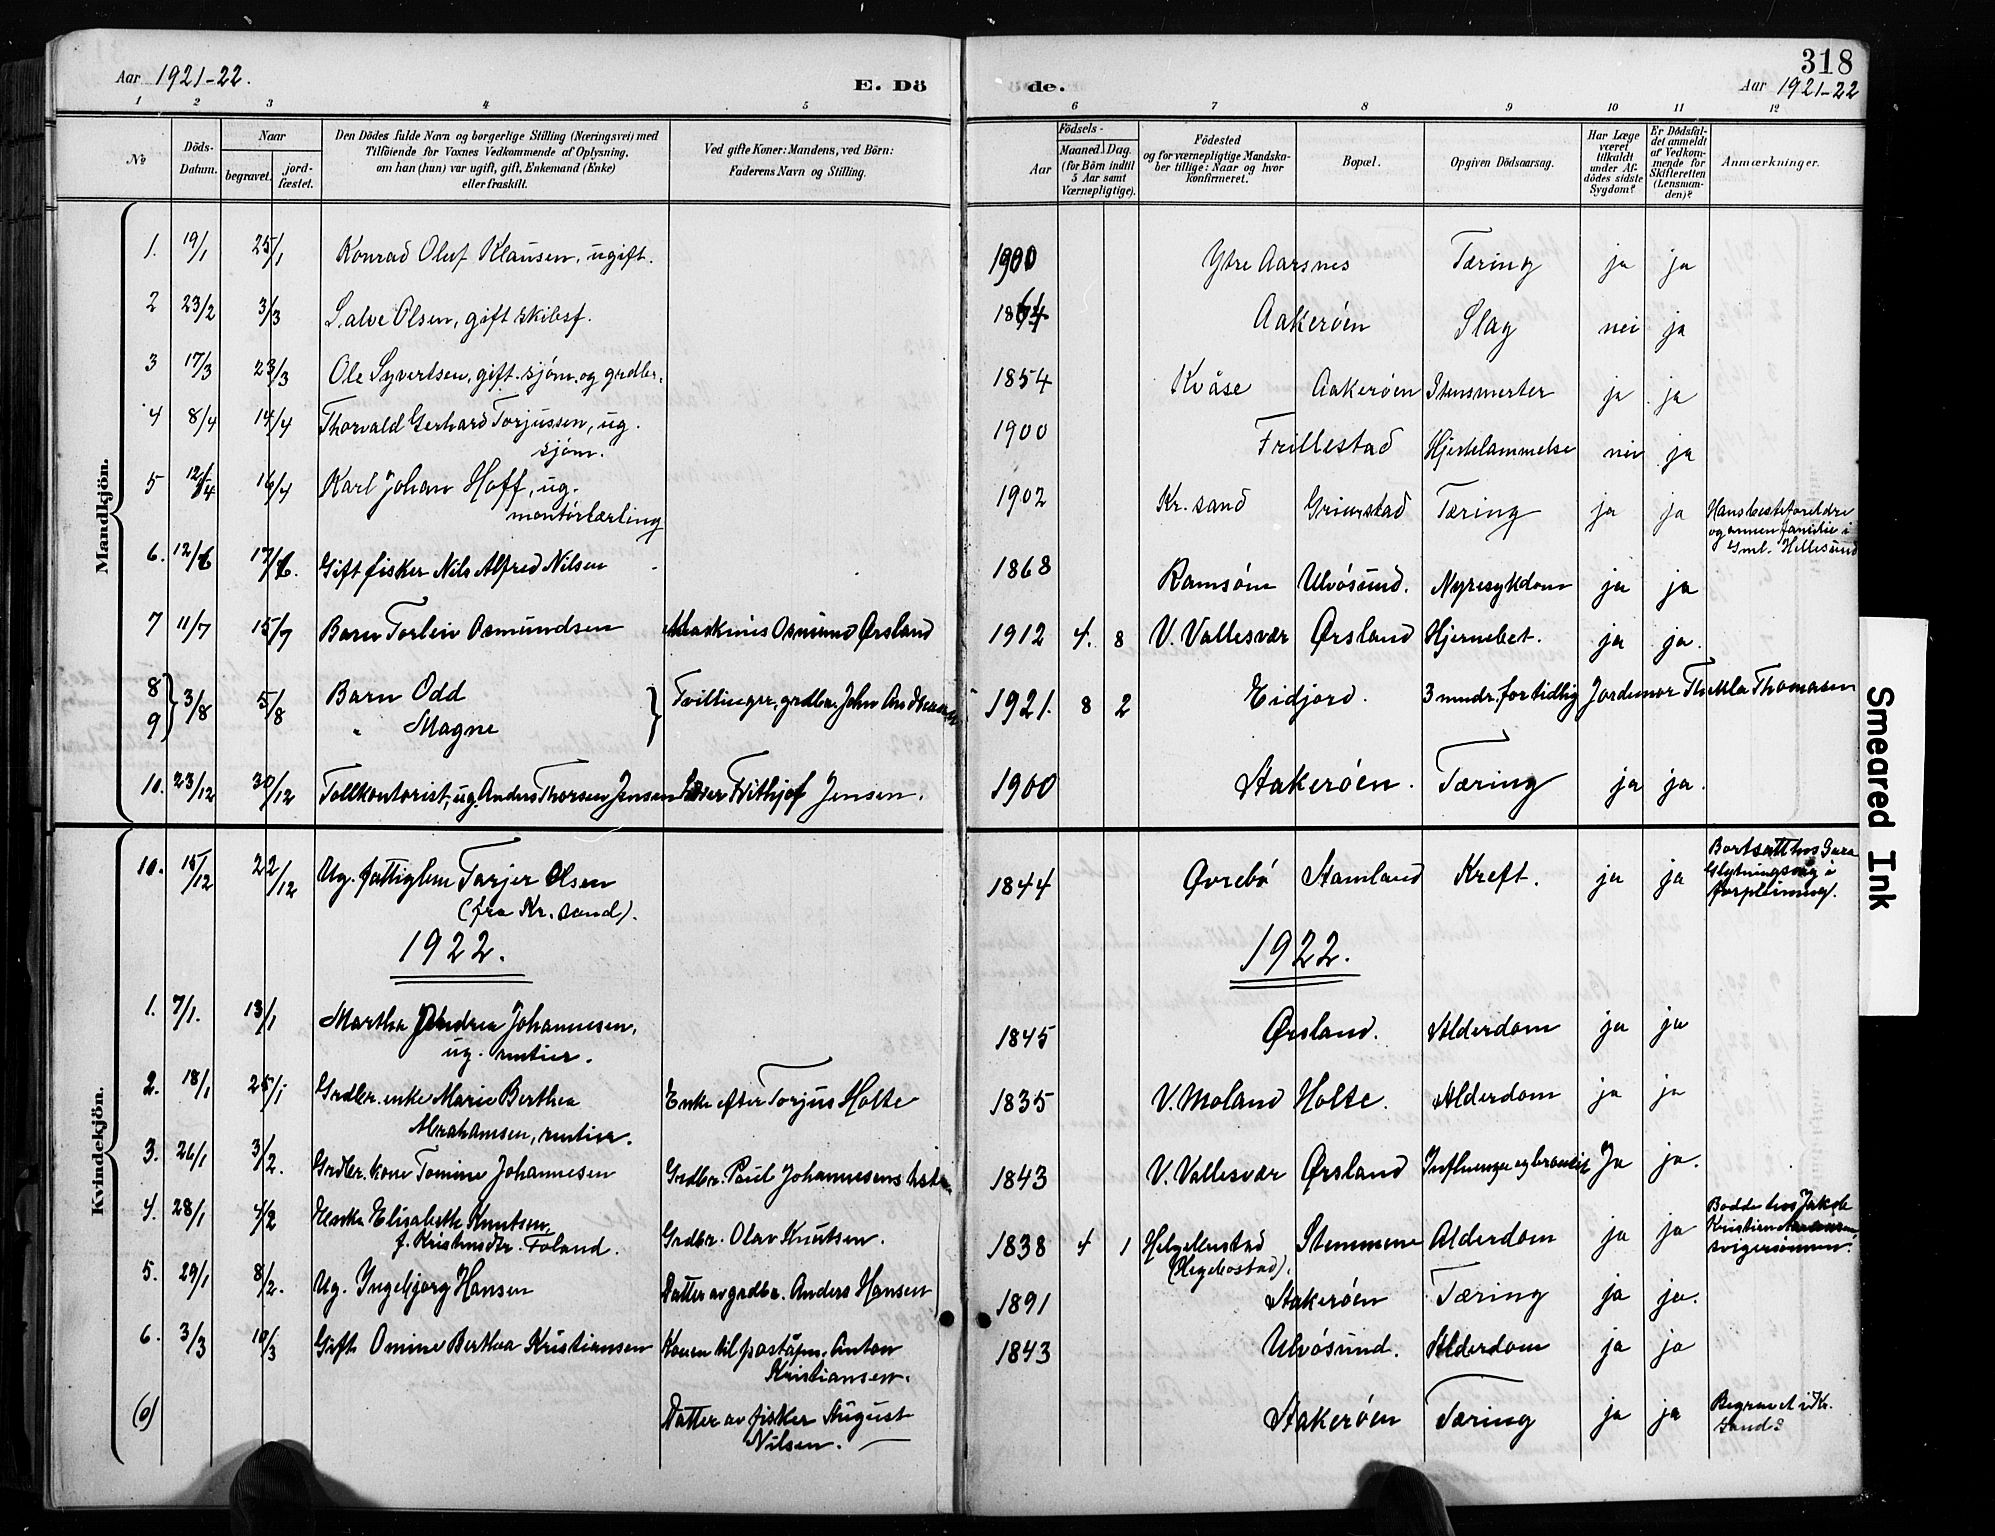 318
Aar 1921-22. E. Dö de. Aar 1921-22
1 2 3 4 5 6 7 8 9 10 11 12
№ Döds-Datum. Naar begravet. jord-fæstet. Den Dödes fulde Navn og borgerlige Stilling (Næringsvei) med Tilföiende for Voxnes Vedkommende af Oplysning, om han (hun) var ugift, gift, Enkemand (Enke) eller fraskilt. Ved gifte Koner: Mandens, ved Börn: Faderens Navn og Stilling.
Födsels- Aar Maaned. Dag. (for Börn indtil 5 Aar samt Værnepligtige). Födested og for værnepligtige Mandskaber tillige: Naar og hvor konfirmeret. Bopæl. Opgiven Dödsaarsag. Har Læge været tilkaldt under Afdödes sidste Sygdom? Er Dödsfaldet anmeldt af Vedkommende for Skifteretten (Lensmanden)? Anmærkninger.
Mandkjön.
1. 19/1 25/1 Konrad Oluf Klausen, ugift. 1900 Ytre Aarsnes Tæring ja ja
2 23/2 3/3 Salve Olsen, gift skibsf. 1864 Aakerøen Slag nei ja
3 17/3 23/3 Ole Syvertsen, gift. sjøm. og grdbr. 1854 Kvåse Aakerøen Stensmerter ja ja
4 8/4 14/4 Thorvald Gerhard Torjussen, ug. 1900 Frillestad Hjertelammelse nei ja
sjøm.
5 12/4 16/4 Karl Johan Hoff, ug. 1902 Kr. sand Grimstad Tæring ja ja Hans besteforeldre
montørlærling og annen familie i
Gml. Hellesund
6. 12/6 17/6. Gift fisker Nils Alfred Nilsen 1868 Ramsøm Ulvøsund. Nyresykdom ja ja
7 11/7 15/7 Barn Torleiv Osmundsen Maskinis Osmund Ørsland 1912 4. 8 V. Vallesvær Ørsland Hjernebet. ja ja.
8 3/8 5/8 Barn Odd Tvillinger, grdbr. John 1921. 8 2 Eidjord. 3 mndr. for tidlig Jordemor Thekla Thomasen
9 " Magne
10. 23/12 30/12 Tollkontorist, ug. Anders Thorsen Jensen Frithjof Jensen. 1900 Aakerøen. Tæring ja ja.
10. 15/12 22/12 Ug. fattiglem Tarjer Olsen 1844 Øvrebø Stamland Kreft. ja ja Bortsatt hos
(fra Kr. sand). i
forpleining.
1922. 1922.
Kvindekjön.
1. 7/1. 13/1 Martha Andrea Johannesen, 1845 Ørsland. Alderdom ja ja
ug. rentier.
2. 18/1 25/1 Grdbr. enke Marie Berthea Enke efter Torjus Holte 1835 V. Moland Holte. Alderdom ja ja
Abrahamsen, rentier.
3. 26/1 3/2. Grdbr. kone Tomine Johannesen Grdbr. Paul Johannesens 1843 V. Vallesvær Ørsland Influenza og bronkit Ja ja.
4. 28/1 4/2 Enke Elisabeth Knutsen, Grdbr. Olav Knutsen. 1838 4 1 Helgellestad Stemmene Alderdom ja ja Bodde hos Jakob
f. Kristensdtr. Foland. (Hegebostad). Kristian
svigersønnen.
5. 29/1 8/2. Ug. Ingebjørg Hansen Datter av grdbr. Anders Hansen 1891 Aakerøen Tæring ja ja.
6. 3/3 10/3 Gift Omine Berthea Kristiansen Konen til poståpn. Anton 1843 Ulvøsund. Alderdom ja ja
Kristiansen.
(o) Datter av fisker August Aakerøen Tæring ja ja Begravet i Kr.
Nilsen. sand.
Smeared Ink